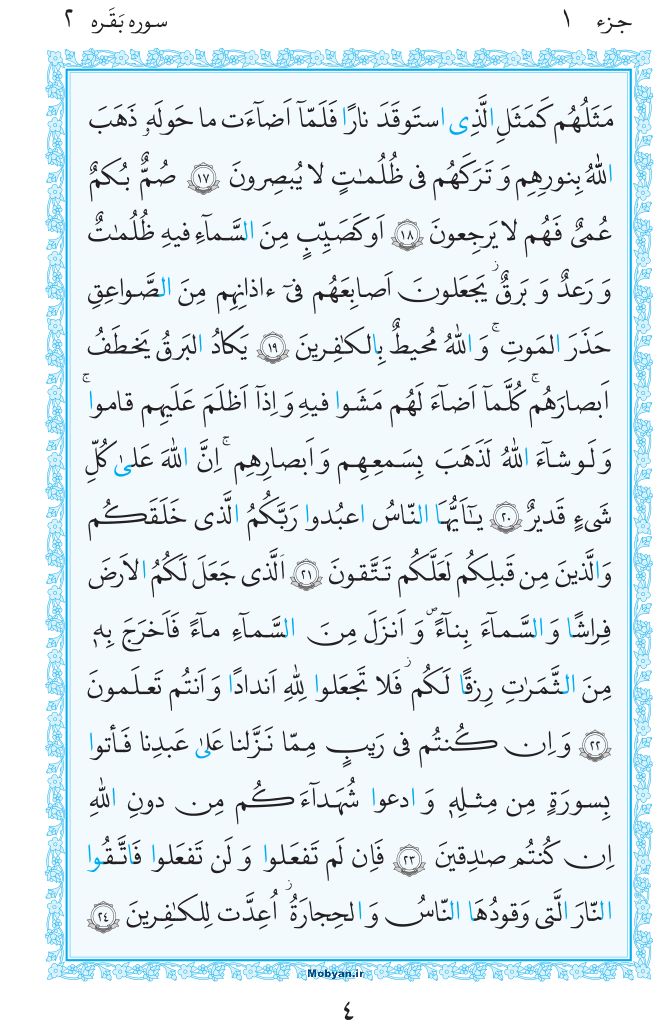 جزء ١ سوره بَقَره ٢
مَثَلُهُم كَمَثَلِ الَّذِى استَوقَدَ نارًا فَلَمّآ اَضآءَت ما حَولَهۥ ذَهَبَ
اللهُ بِنورِهِم وَ تَرَكَهُم فى ظُلُمـٰتٍ لا يُبصِرونَ ﴿١٧﴾ صُمٌّ بُكمٌ
عُمىٌ فَهُم لا يَرجِعونَ ﴿١٨﴾ اَو كَصَيِّبٍ مِنَ السَّمآءِ فيهِ ظُلُمـٰتٌ
وَ رَعدٌ وَ بَرقٌ ۫ يَجعَلونَ اَصابِعَهُم فىٓ ءاذانِهِم مِنَ الصَّواعِقِ
حَذَرَ المَوتِ ۚ وَ اللهُ مُحيطٌ بِالكـٰفِرينَ ﴿١٩﴾ يَكادُ البَرقُ يَخطَفُ
اَبصارَهُم ۚ كُلَّمآ اَضآءَ لَهُم مَشَوا فيهِ وَ اِذآ اَظلَمَ عَلَيهِم قاموا ۚ
وَ لَو شآءَ اللهُ لَذَهَبَ بِسَمعِهِم وَ اَبصارِهِم ۚ اِنَّ اللهَ عَلىٰ كُلِّ
شَىءٍ قَديرٌ ﴿٢٠﴾ يـٰٓاَيُّهَا النّاسُ اعبُدوا رَبَّكُمُ الَّذى خَلَقَكُم
وَالَّذينَ مِن قَبلِكُم لَعَلَّكُم تَتَّقونَ ﴿٢١﴾ اَلَّذى جَعَلَ لَكُمُ الاَرضَ
فِراشًا وَ السَّمآءَ بِنآءً ۖ وَ اَنزَلَ مِنَ السَّمآءِ مآءً فَاَخرَجَ بِهٖ
مِنَ الثَّمَرٰتِ رِزقًا لَكُم ۫ فَلا تَجعَلوا لِلّٰهِ اَندادًا وَ اَنتُم تَعلَمونَ
﴿٢٢﴾ وَ اِن كُنتُم فى رَيبٍ مِمّا نَزَّلنا عَلىٰ عَبدِنا فَأتوا
بِسورَةٍ مِن مِثلِهٖ وَ ادعوا شُهَدآءَكُم مِن دونِ اللهِ
اِن كُنتُم صـٰدِقينَ ﴿٢٣﴾ فَاِن لَم تَفعَلوا وَ لَن تَفعَلوا فَاتَّقُوا
النّارَ الَّتى وَقودُهَا النّاسُ وَ الحِجارَةُ ۫ اُعِدَّت لِلكـٰفِرينَ ﴿٢٤﴾
Mobyan.ir
٤